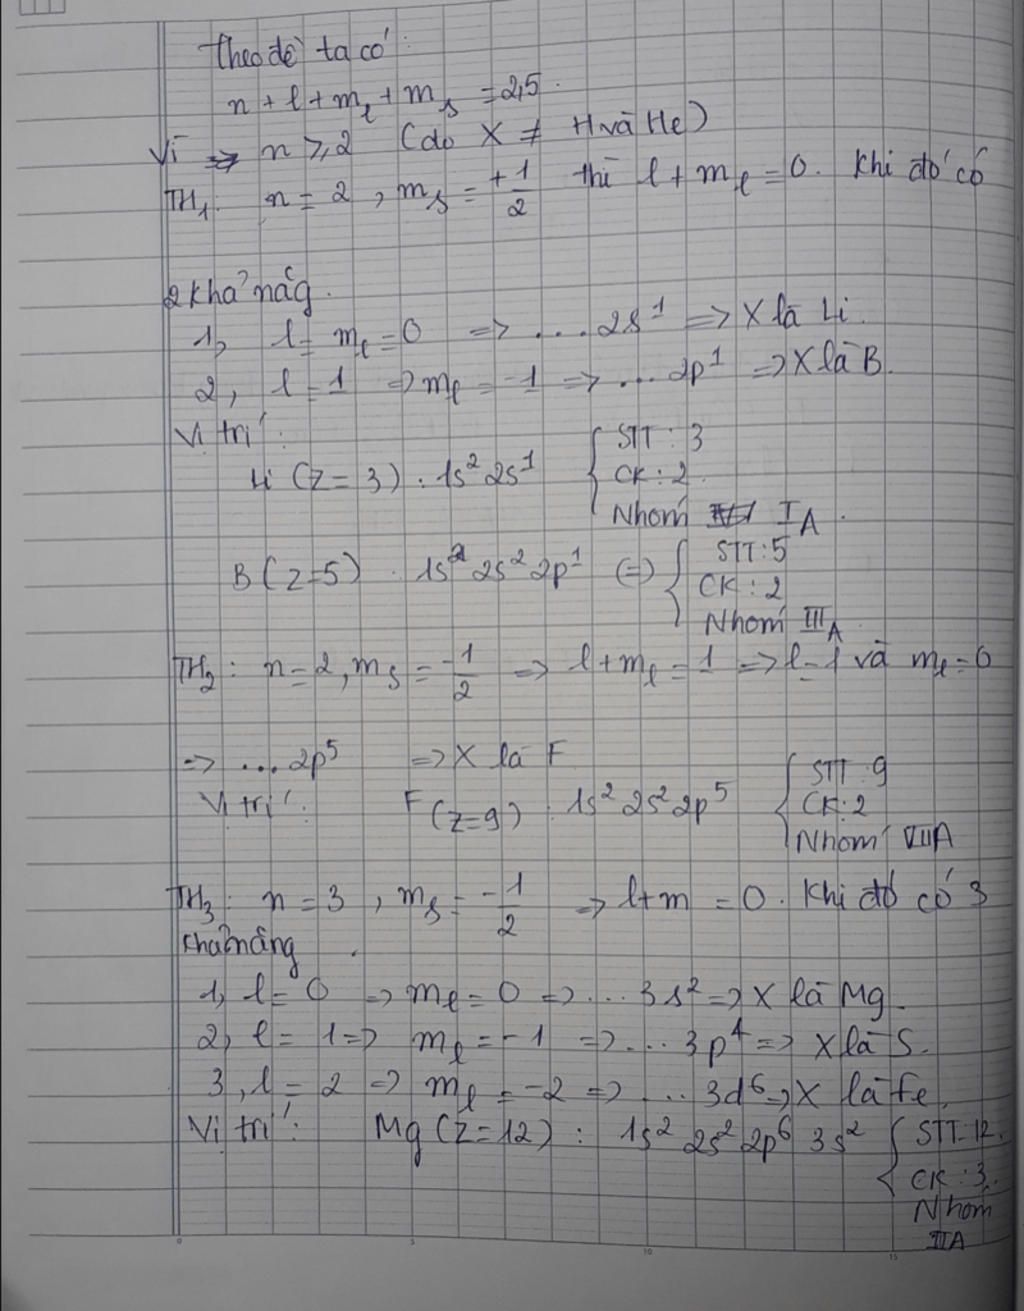 Theo đề ta có:
n + l + m_l + m_s = 2,5.
Vì => n ⩾ 2 (do X ≠ H và He)
TH1: n = 2, m_s = +1/2 thì l + m_l = 0. Khi đó có
2 khả năg.
1, l = m_l = 0 => ....2s¹ => X là Li.
2, l = 1 => m_l = -1 => ...2p¹ => X là B.
Vị trí:
Li (Z = 3): 1s² 2s¹ { STT : 3
CK : 2.
Nhóm IA.
B (z=5): 1s² 2s² 2p¹ (=) { STT : 5
CK : 2
Nhóm IIIA.
TH2: n = 2, m_s = -1/2 => l + m_l = 1 => l = 1 và m_l = 0
=> ...2p⁵ => X là F
Vị trí: F (z=9): 1s² 2s² 2p⁵ { STT : 9
CK : 2
Nhóm VIIA
TH3: n = 3, m_s = -1/2 => l + m = 0. Khi đó có 3
khả năng.
1, l = 0 => m_l = 0 => ...3s² => X là Mg.
2, l = 1 => m_l = -1 => ...3p⁴ => X là S.
3, l = 2 => m_l = -2 => ...3d⁶ => X là Fe.
Vị trí: Mg (Z = 12): 1s² 2s² 2p⁶ 3s² { STT = 12.
CK : 3.
Nhóm
IIA
0 5 10 15